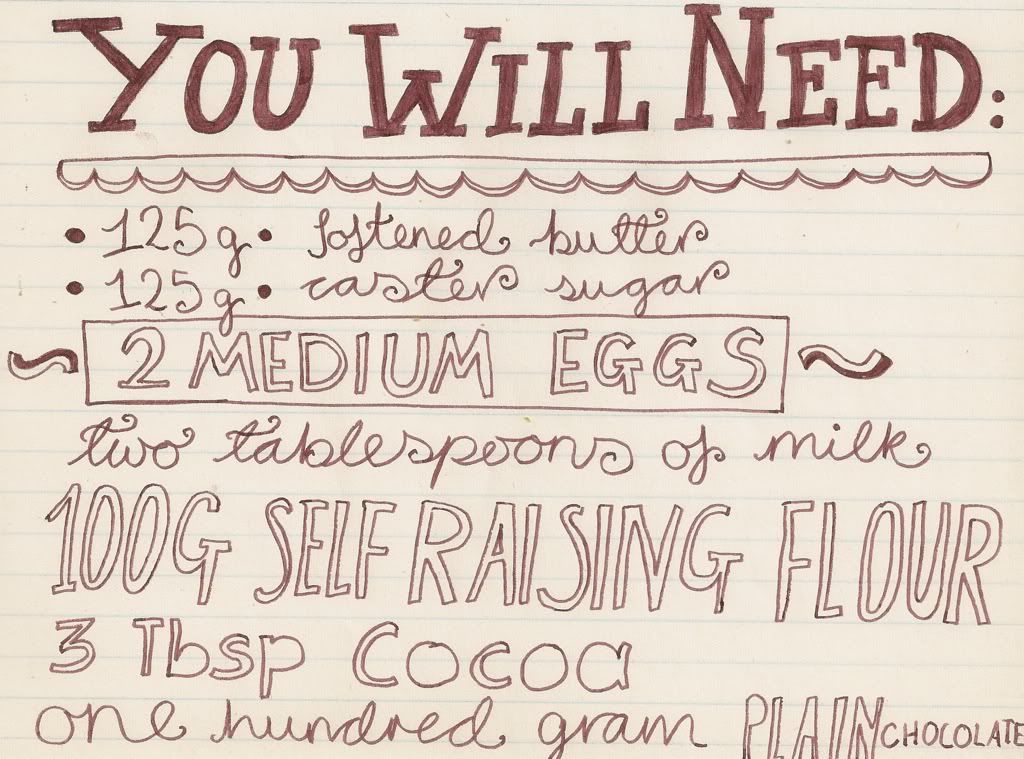 YOU WILL NEED:
• 125g • softened butter
• 125g • caster sugar
~ 2 MEDIUM EGGS ~
two tablespoons of milk
100G SELF RAISING FLOUR
3 Tbsp Cocoa
one hundred gram PLAIN CHOCOLATE